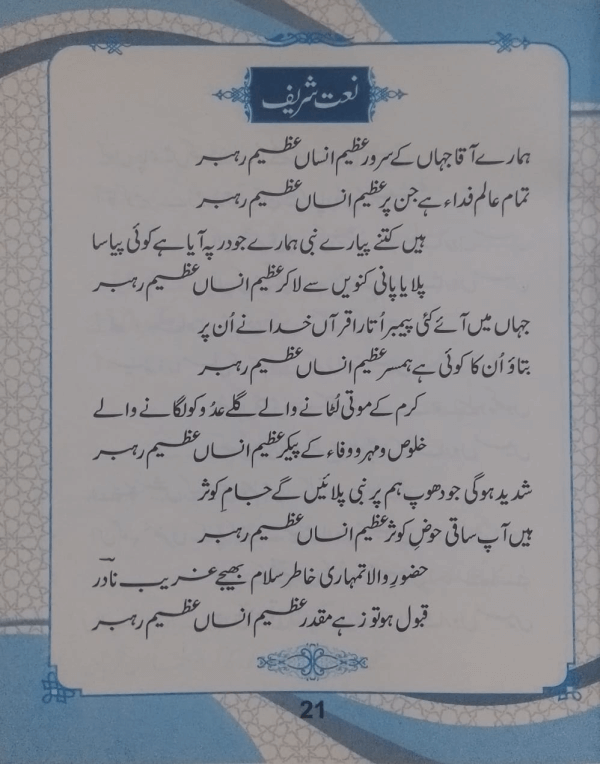 نعت شریف
ہمارے آقا جہاں کے سرور عظیم انساں عظیم رہبر
تمام عالم فداء ہے جن پر عظیم انساں عظیم رہبر
ہیں کتنے پیارے نبی ہمارے جو در پہ آیا ہے کوئی پیاسا
پلایا پانی کنویں سے لا کر عظیم انساں عظیم رہبر
جہاں میں آئے کئی پیمبر اُتارا قرآں خدا نے اُن پر
بتاؤ اُن کا کوئی ہے ہمسر عظیم انساں عظیم رہبر
کرم کے موتی لُٹانے والے گلے عدُو کو لگانے والے
خلوص و مہر و وفاء کے پیکر عظیم انساں عظیم رہبر
شدید ہوگی جو دھوپ ہم پر نبی پلائیں گے جامِ کوثر
ہیں آپ ساقی حوضِ کوثر عظیم انساں عظیم رہبر
حضورِ والا تمہاری خاطر سلام بھیجے غریب نادر
قبول ہو تو زہے مقدر عظیم انساں عظیم رہبر
21